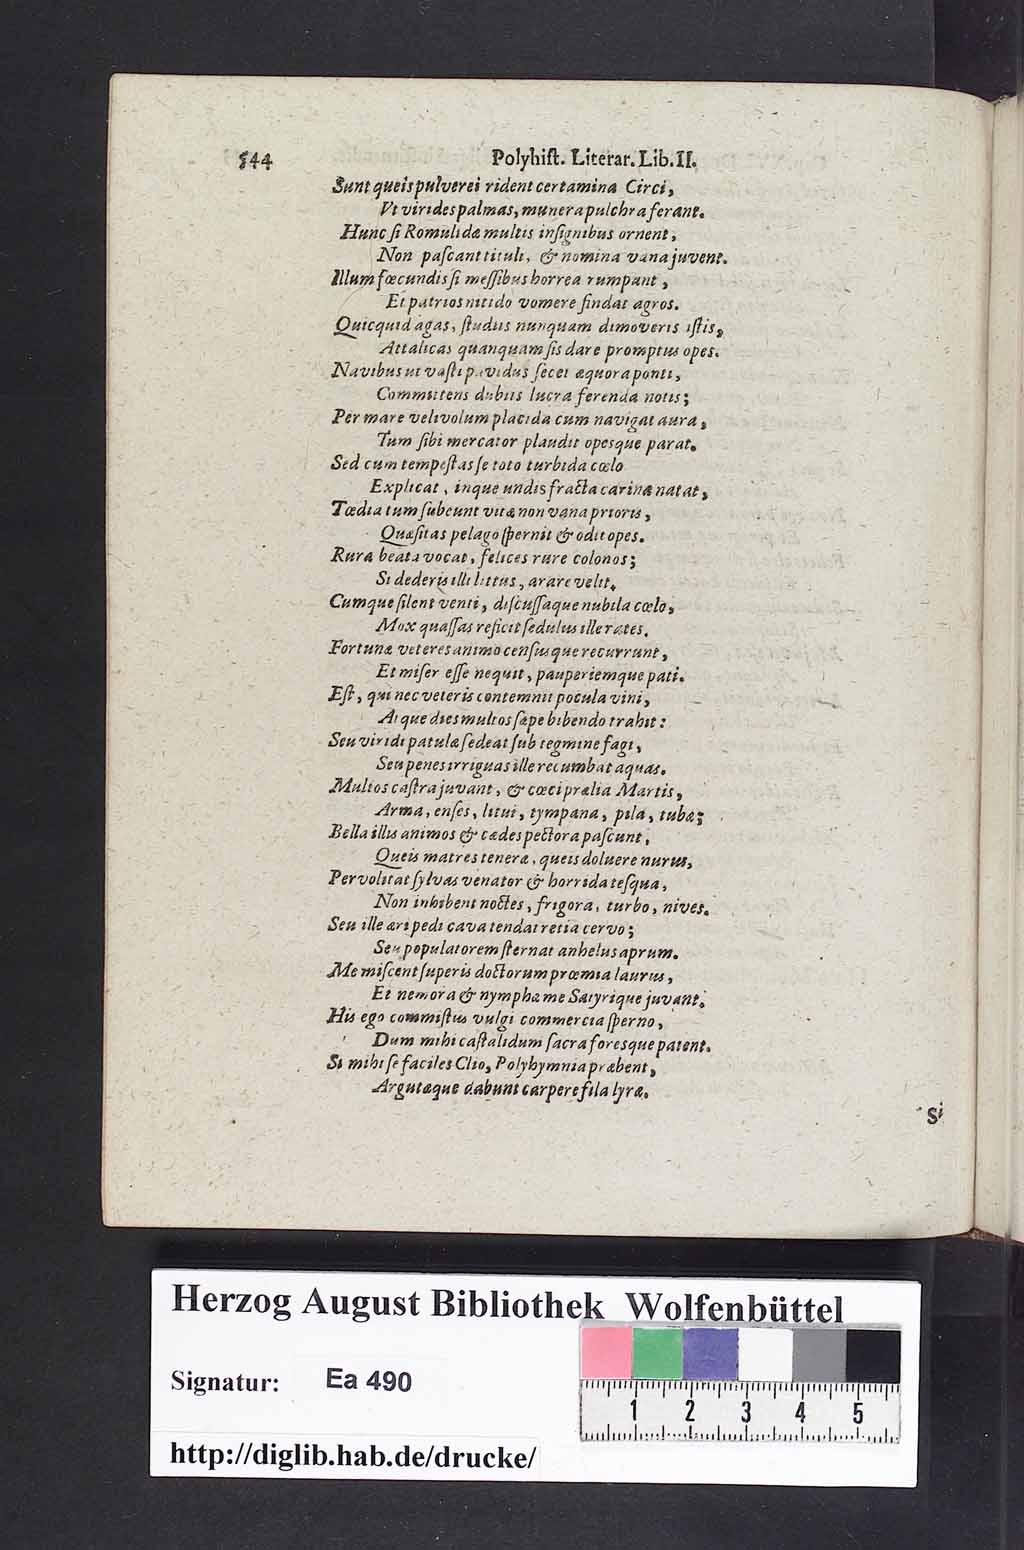 544 Polyhiſt. Literar. Lib. II.
Sunt queis pulverei rident certamina Circi,
Vt virides palmas, munera pulchra ferant.
Hunc ſi Romulidæ multis inſignibus ornent,
Non paſcant tituli, & nomina vana juvent.
Illum fœcundis ſi meſſibus horrea rumpant,
Et patrios nitido vomere findat agros.
Quicquid agas, ſtudiis nunquam dimoveris iſtis,
Attalicas quanquam ſis dare promptus opes.
Navibus ut vaſti pavidus ſecet æquora ponti,
Committens dubiis lucra ferenda notis;
Per mare velivolum placida cum navigat aura,
Tum ſibi mercator plaudit opesque parat.
Sed cum tempeſtas ſe toto turbida cœlo
Explicat, inque undis fracta carina natat,
Tœdia tum ſubeunt vitæ non vana prioris,
Quæſitas pelago ſpernit & odit opes.
Rura beata vocat, felices rure colonos;
Si dederis illi littus, arare velit.
Cumque ſilent venti, diſcuſſaque nubila cœlo,
Mox quaſſas reficit ſedulus ille rates.
Fortunæ veteres animo cenſusque recurrunt,
Et miſer eſſe nequit, pauperiemque pati.
Eſt, qui nec veteris contemnit pocula vini,
Atque dies multos ſæpe bibendo trahit:
Seu viridi patulæ ſedeat ſub tegmine fagi,
Seu penes irriguas ille recumbat aquas.
Multos caſtra juvant, & cœci prælia Martis,
Arma, enſes, litui, tympana, pila, tubæ;
Bella illis animos & cædes pectora paſcunt,
Queis matres teneræ, queis doluere nurus,
Pervolitat ſylvas venator & horrida teſqua,
Non inhibent noctes, frigora, turbo, nives.
Seu ille æripedi cava tendat retia cervo;
Seu populatorem ſternat anhelus aprum.
Me miſcent ſuperis doctorum præmia laurus,
Et nemora & nymphæ me Satyrique juvant.
His ego commiſtus vulgi commercia ſperno,
Dum mihi caſtalidum ſacra foresque patent.
Si mihi ſe faciles Clio, Polyhymnia præbent,
Argutæque dabunt carpere fila lyræ.
Si
Herzog August Bibliothek Wolfenbüttel
Signatur: Ea 490
1 2 3 4 5
http://diglib.hab.de/drucke/